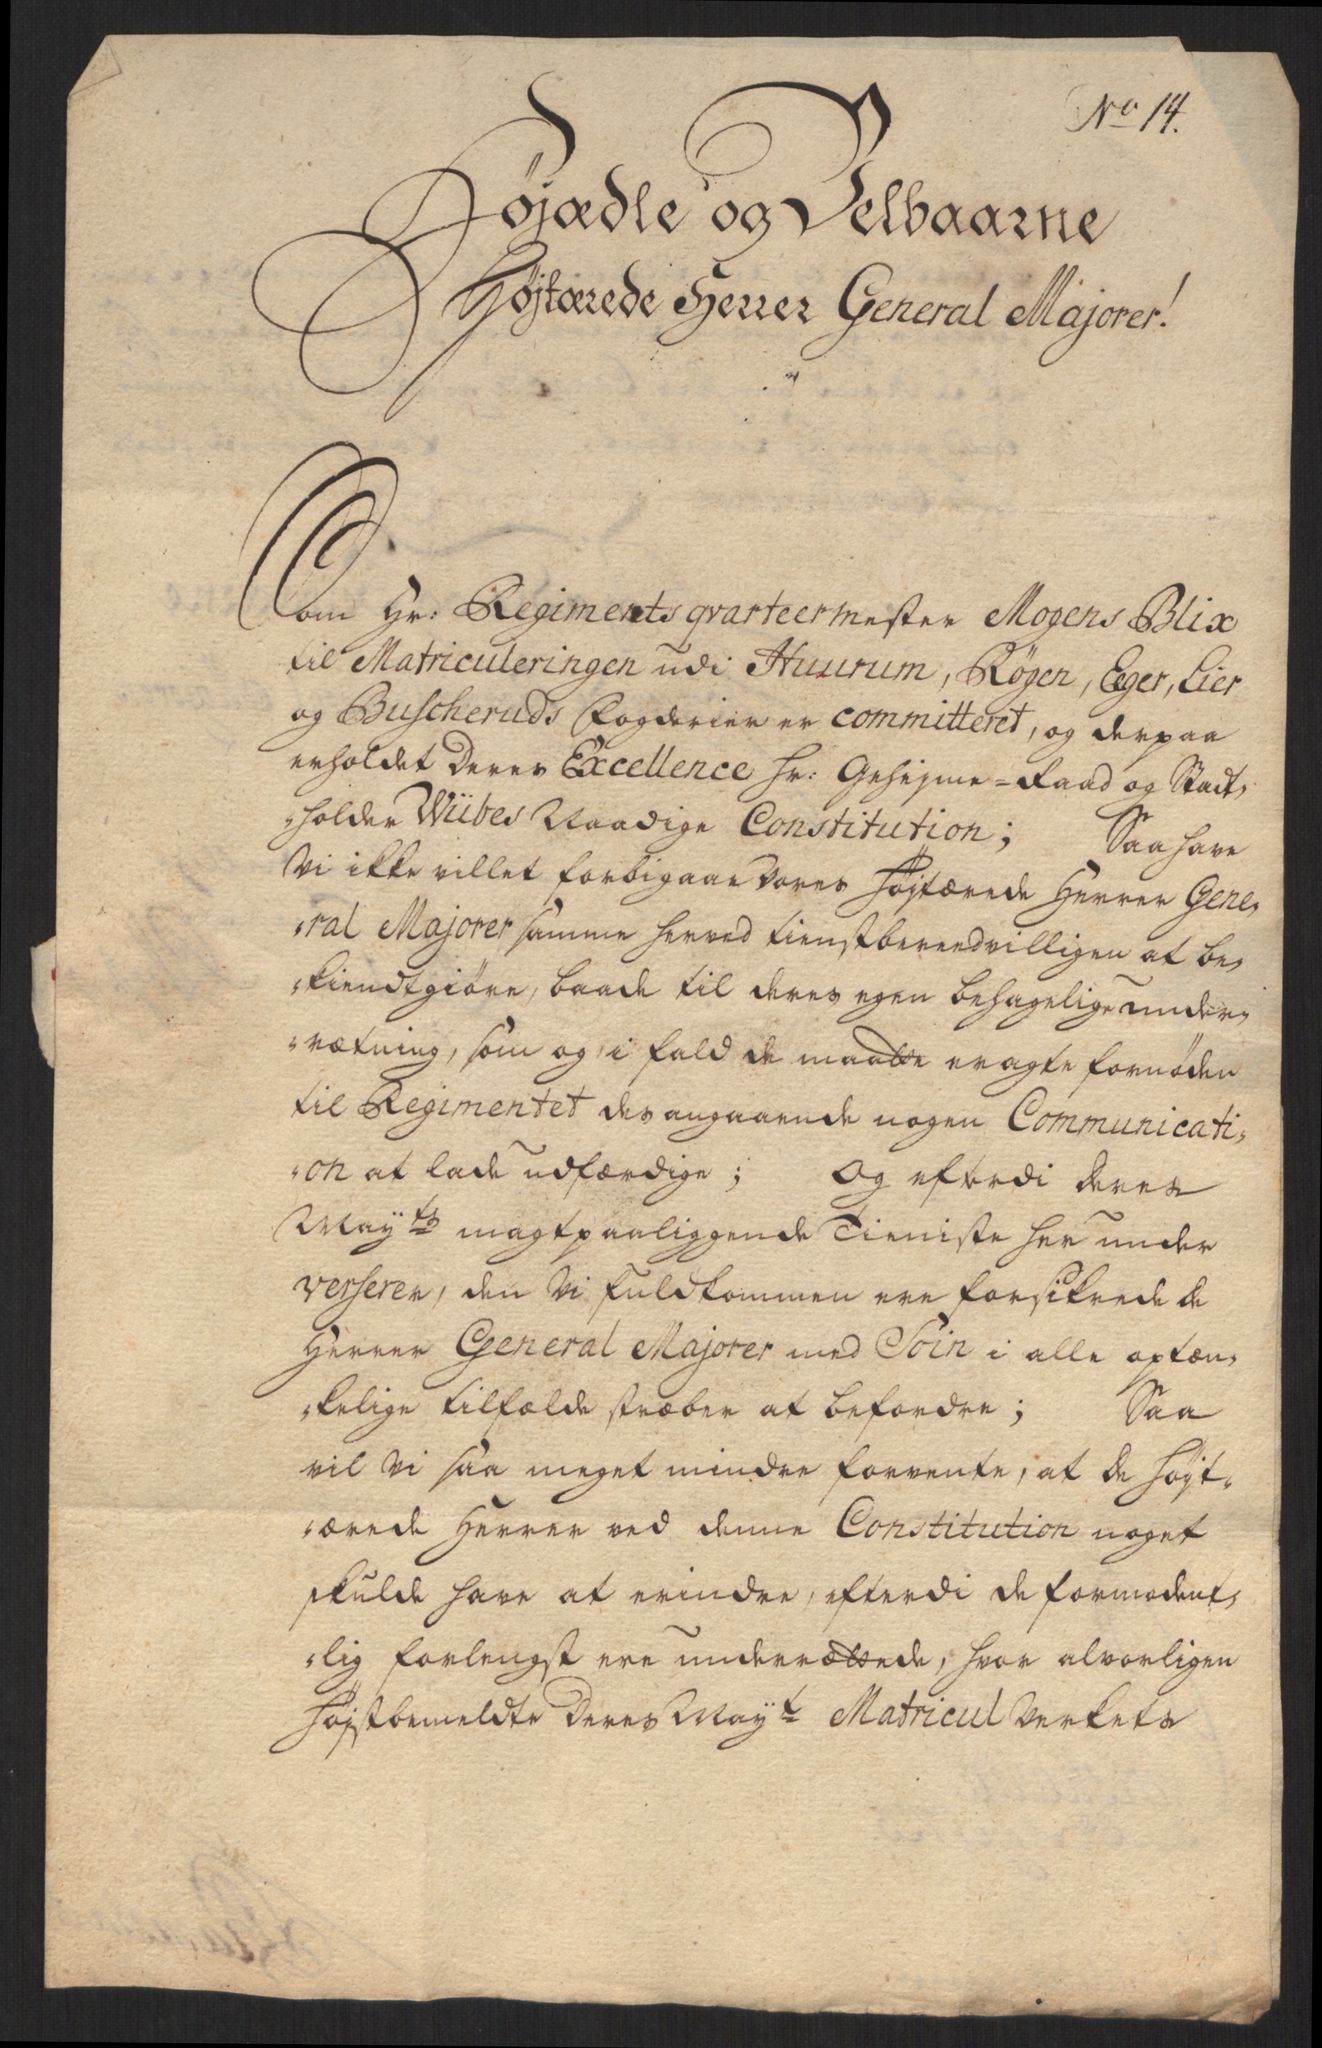 No 14.
Højædle og Velbaarne
Højstærede Herrer General Majorer!
Som Hr: Regimentsqvarteermester Mogens Blix
til Matriculeringen udi Huurum, Røgen, Eger, Lier
og Buscheruds Fogderier er committeret, og derpaa
erholdet Deres Excellence Hr: Geheime-Raad og Stadt-
-holder Wiibes Naadige Constitution; Saa have
Vi ikke villet forbigaae Vores Højstærede Herrer Gene-
-ral Majorer samme herved tienstbereedvilligen at be-
-kiendtgiøre, baade til deres egen behagelige under-
-rætning, som og i fald de maatte eragte fornøden
til Regimentet desangaaende nogen Communicati-
-on at lade udfærdige; Og efterdi deres
Mayts magtpaaliggende Tieniste her under
verserer, den Vi fuldkommen ere forsikrede de
Herrer General Majorer med Soin i alle optæn-
-kelige tilfælde stræber at befordre; Saa
vil Vi saa meget mindre forvente, at de Højst-
-ærede Herrer ved denne Constitution noget
skulde have at erindre, efterdi de formodent-
-lig forlengst ere underrættede, hvor alvorligen
Højstbemeldte Deres Mayt Matricul Verkets